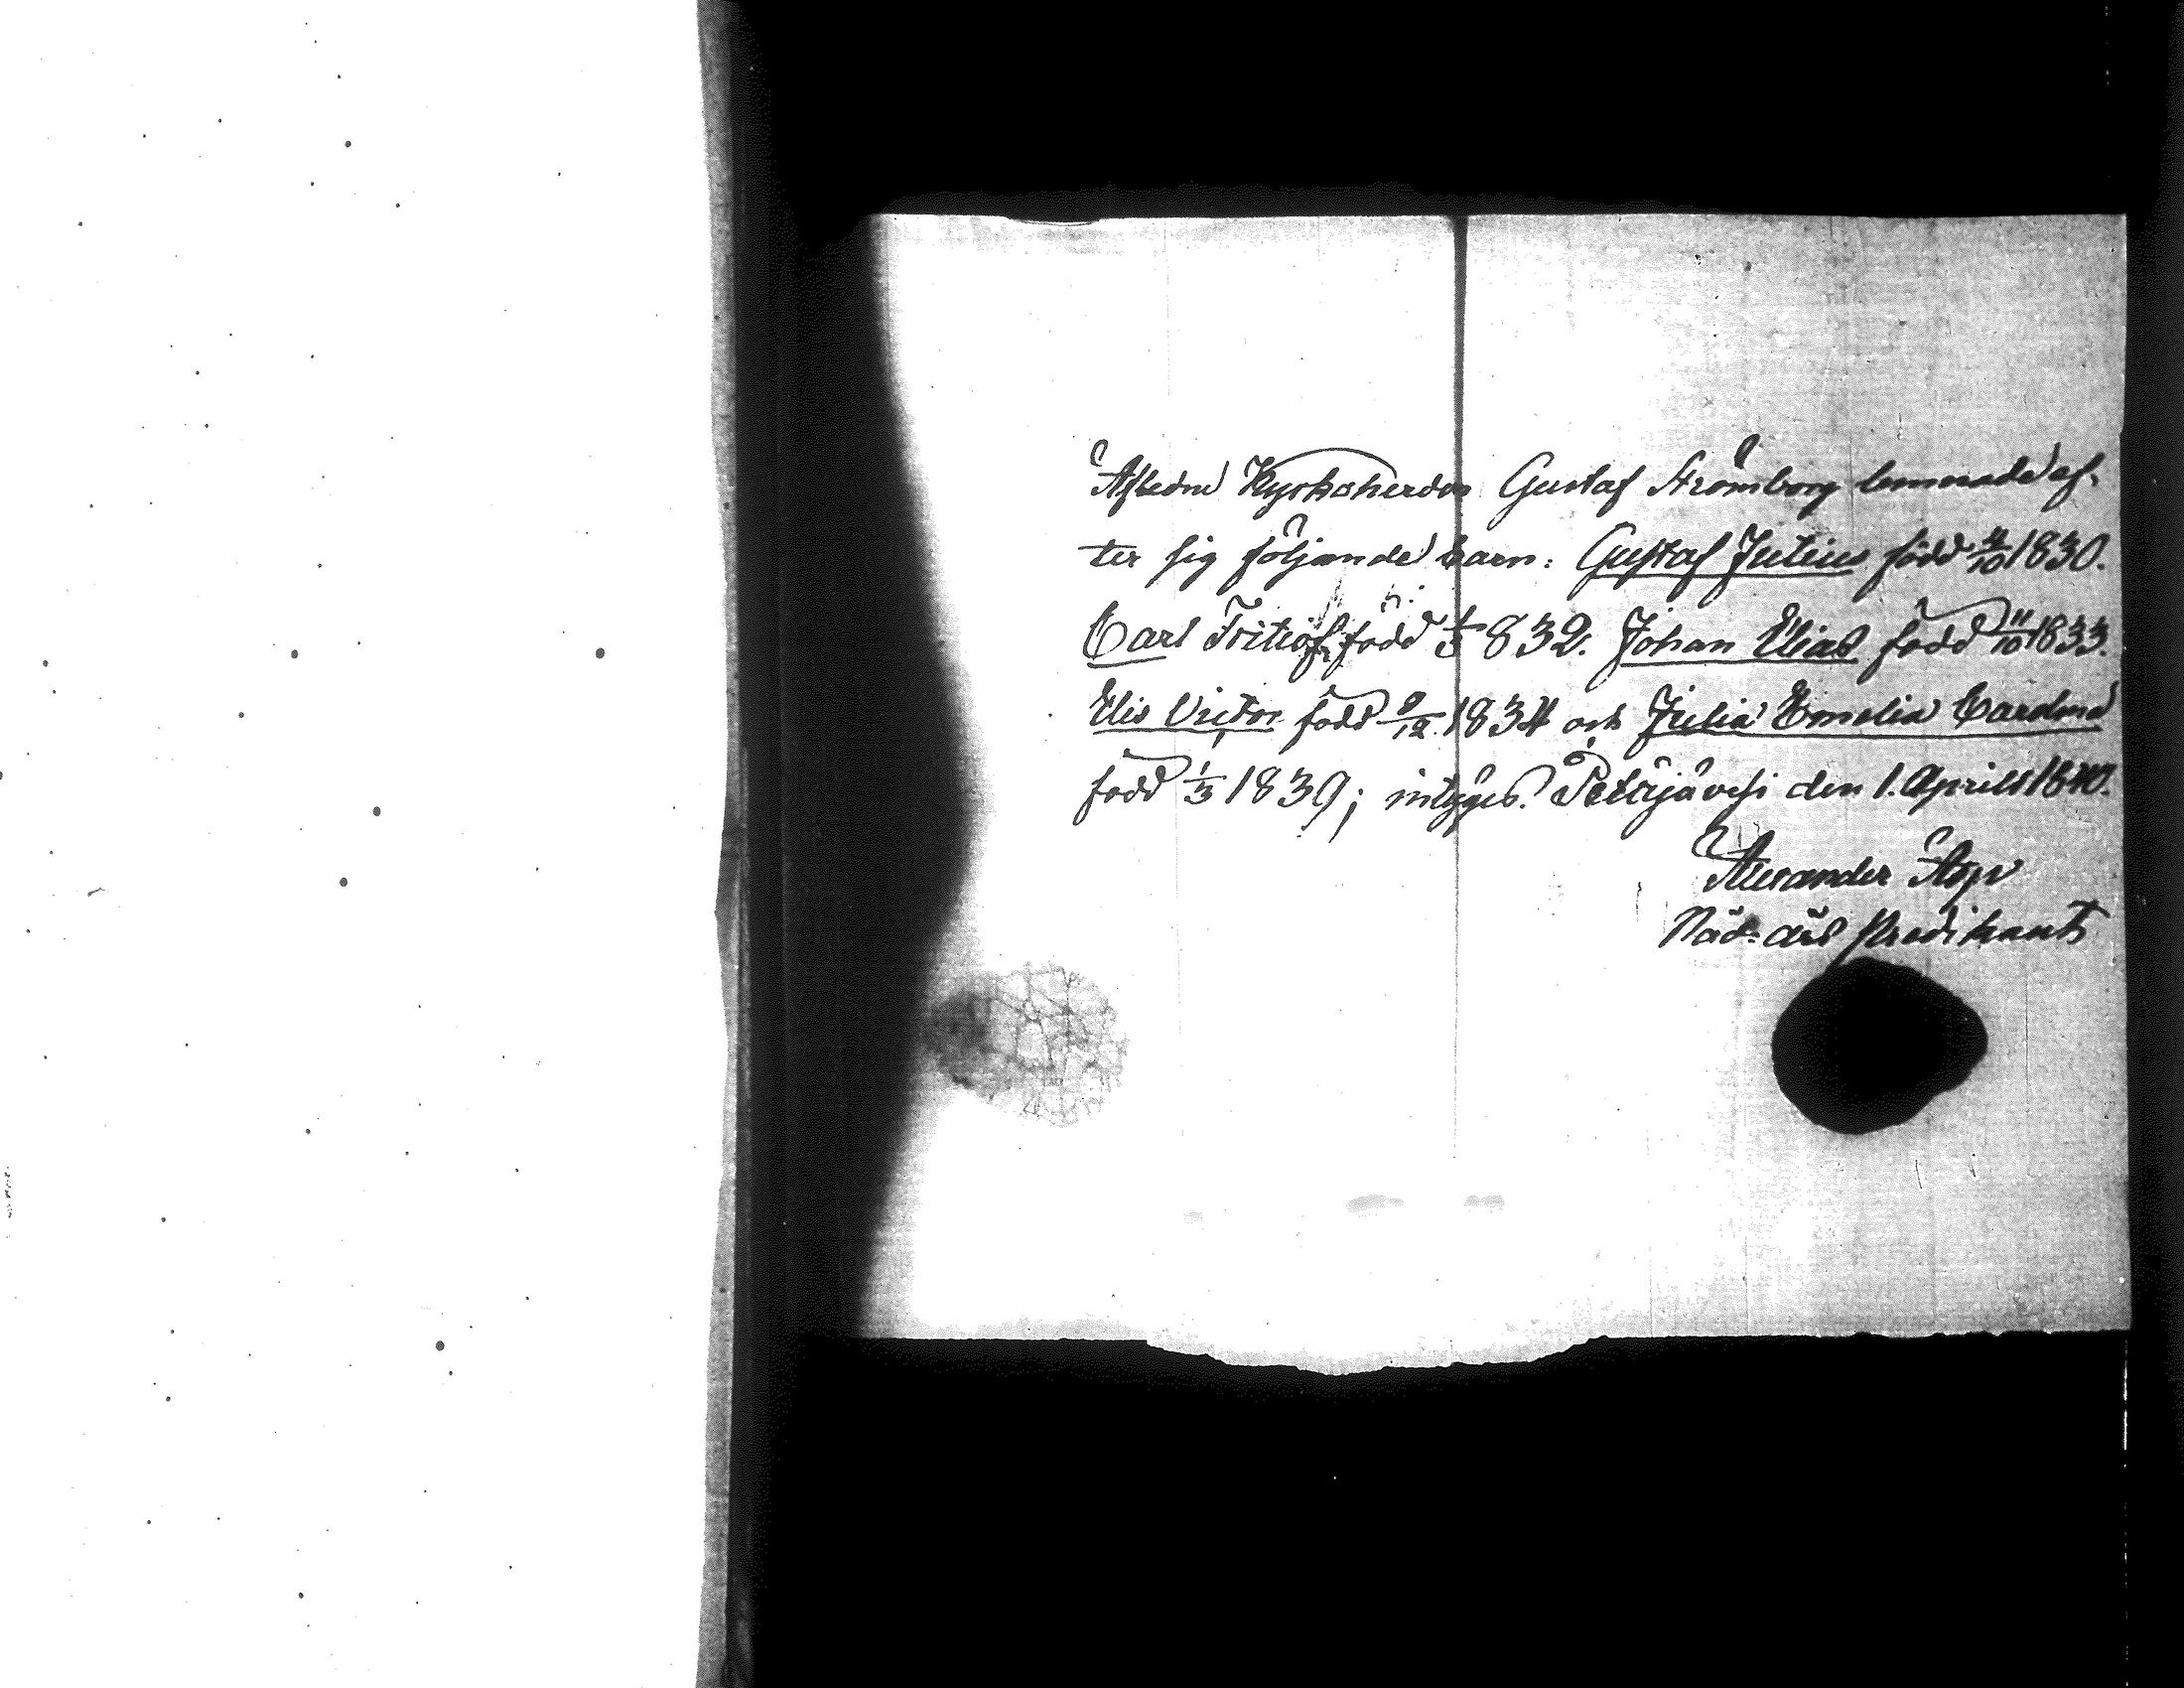 Afledne Kyrkoherden Gustaf Strömborg lemnade ef-
ter sig följande barn: Gustaf Julius född 4/10 1830.
Carl Fritiof född 1/3 832. Johan Elias född 11/10 1833.
Elis Victor född 9/12 1834 och Julia Emelia Carolina
född 1/3 1839; intygas. Petäjävesi den 1. Aprill 1840.
Alexander Asp
Nåd-års Predikant